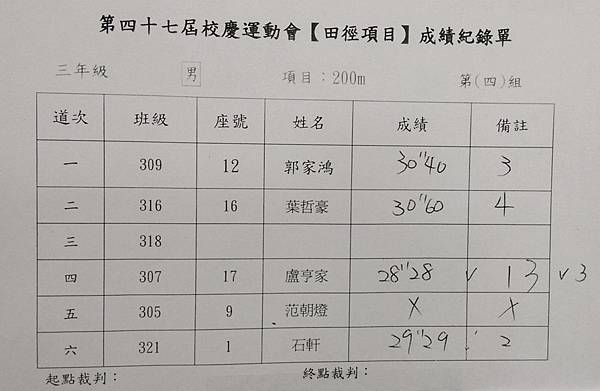 第四十七屆校慶運動會【田徑項目】成績紀錄單
三年級 男 項目：200m 第(四)組
道次 班級 座號 姓名 成績 備註
一 309 12 郭家鴻 30"40 3
二 316 16 葉哲豪 30"60 4
三 318
四 307 17 盧亨家 28"28 v 1 3 v3
五 305 9 范朝燈 X X
六 321 1 石軒 29"29 2
起點裁判： 終點裁判：